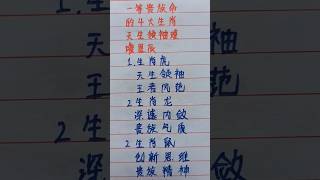 一等贵族命
的4大生肖
天生领袖璀
璨星辰
1.生肖虎
天生领袖
王者风范
2.生肖龙
深邃内敛
贵族气质
2.生肖鼠
创新思维
贵族精神